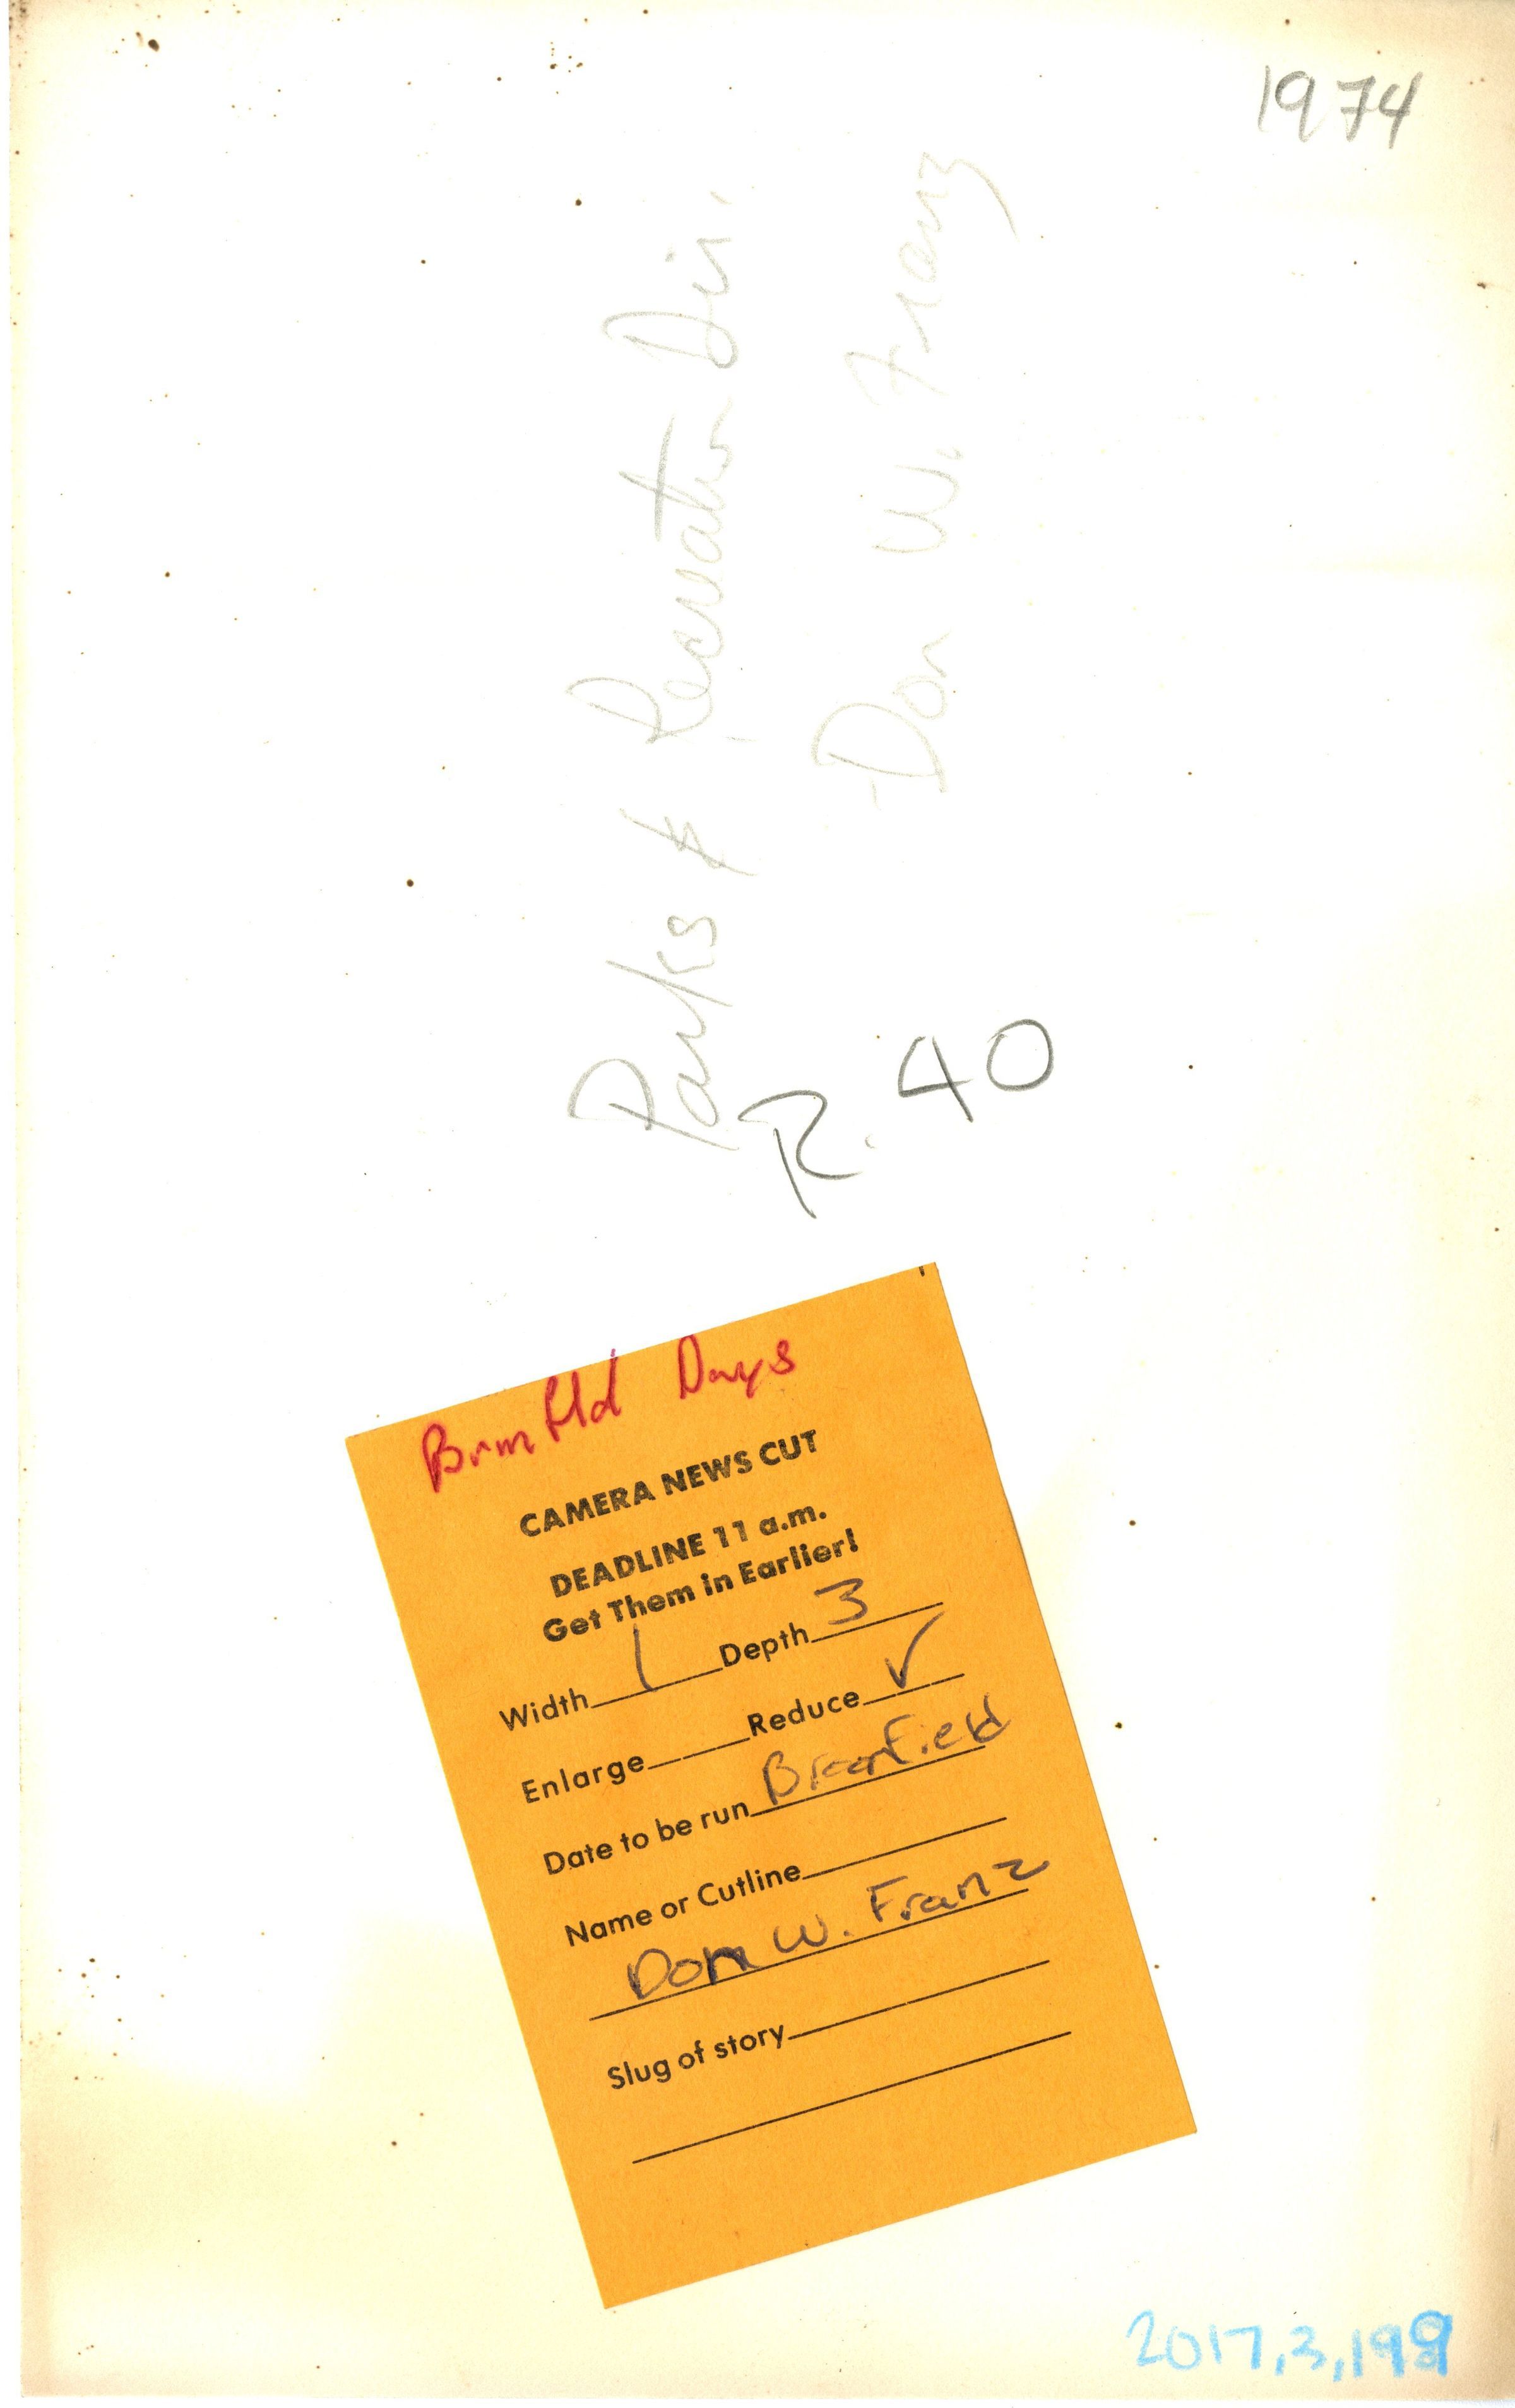 1974
Parks & Recreation Dir.
Don W. Franz
R. 40
Brmfld Days
CAMERA NEWS CUT
DEADLINE 11 a.m.
Get Them in Earlier!
Width 1 Depth 3
Enlarge Reduce ✓
Date to be run
Name or Cutline
Don W. Franz
Slug of story
2017.3.199